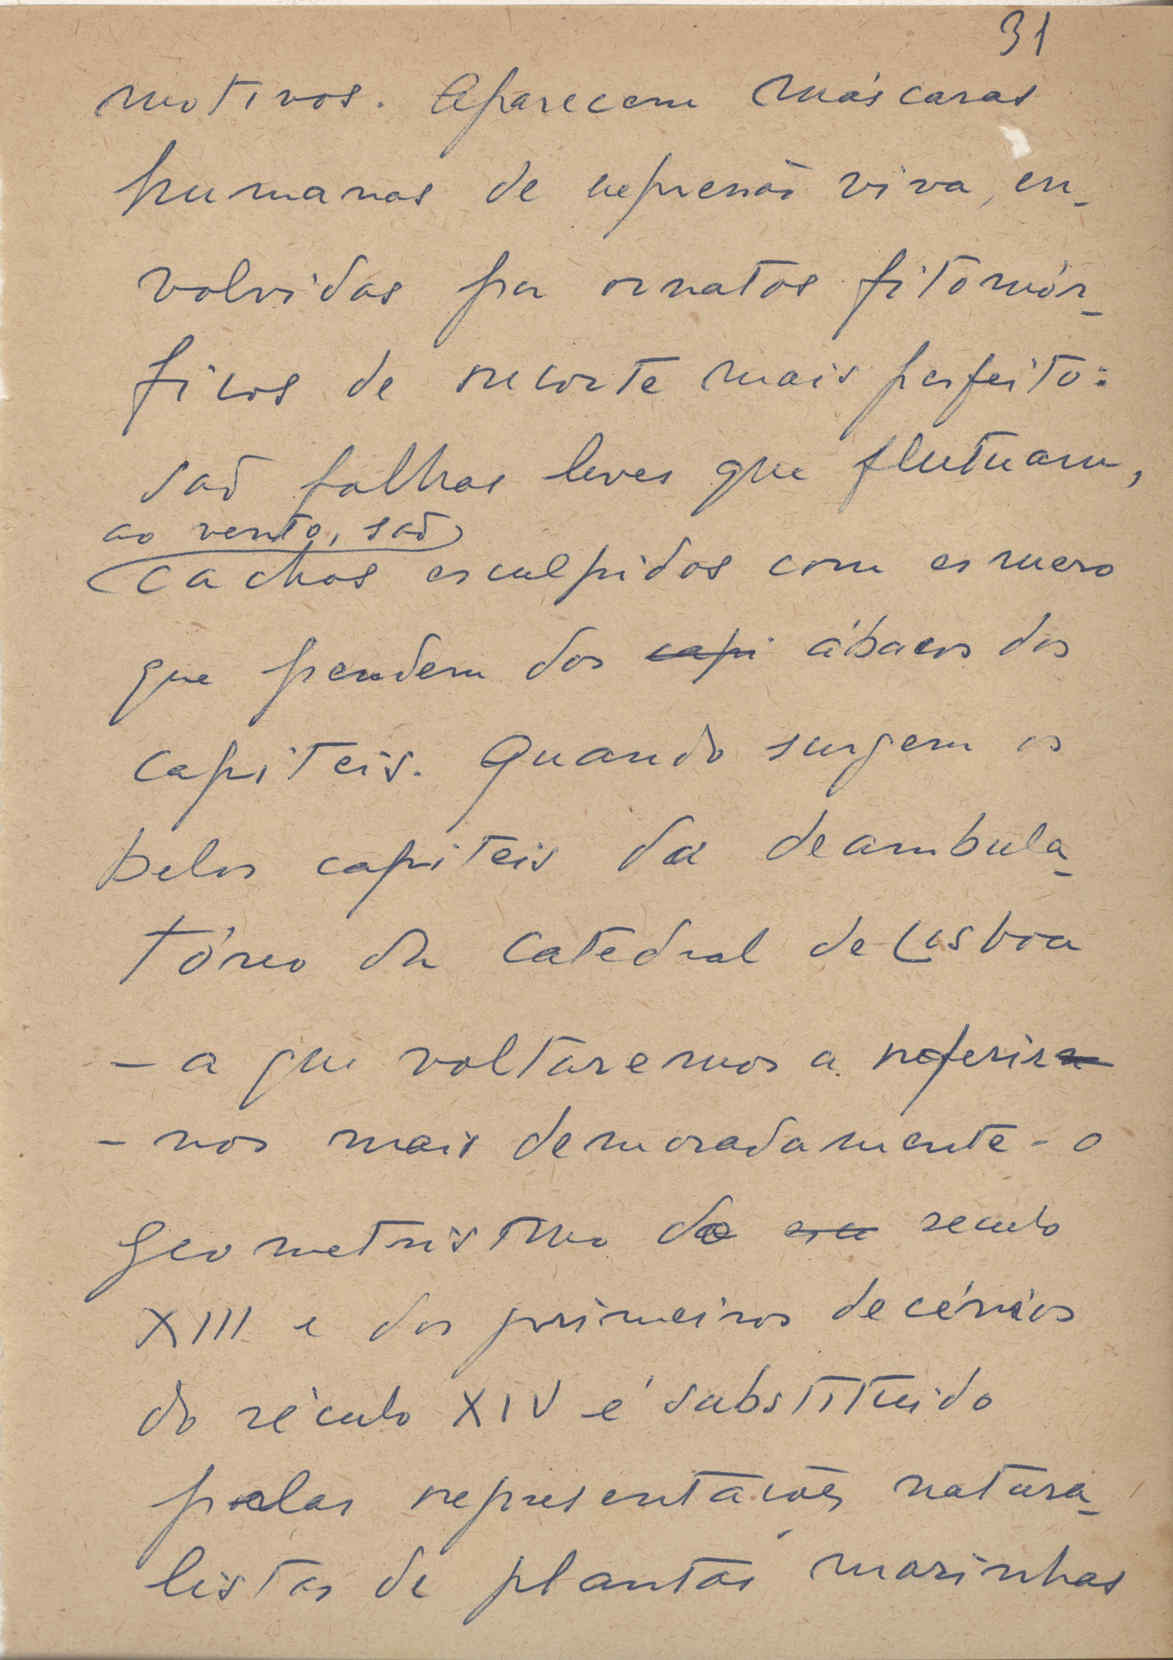 31
motivos. Aparecem máscaras
humanas de expressão viva, en-
volvidas por ornatos fitomór-
ficos de recorte mais perfeito:
são folhas leves que flutuam,
ao vento, são
cachos esculpidos com esmero
que pendem dos capi ábacos dos
capiteis. Quando surgem os
belos capiteis da deambula-
tório da Catedral de Lisboa
- a que voltaremos a referir
- nos mais demoradamente - o
geometrismo do seculo
XIII e dos primeiros decénios
do século XIV é substituido
pelas representações natura-
listas de plantas marinhas